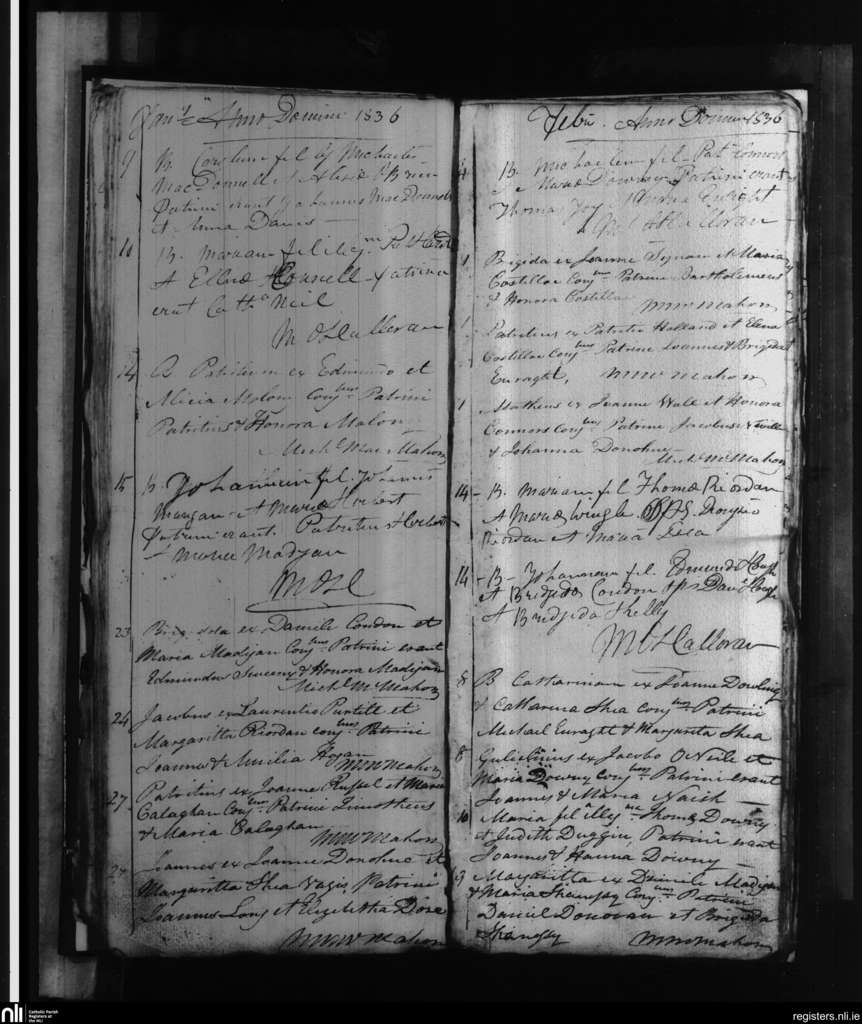 Anno Domini 1836
9 B. fil Michaelis
MacDonnell Alicia
Patrini erant Johannes MacDonnell
et Anna Davis
10 B. Mariam fil
A Ellenæ Connell Patrina
erat Neil
M OHalloran
14 B Patritium ex Edmundo et
Alicia Molony Conjbus Patrini
Patritius & Honora Malony
Michl MacMahon
15 B. Johannem fil. Johannis
Mangan A Mariæ Herbert
Patrini erant Patritius Herbert
Maria Madjan
MOH
23 Brigida ex Daniele Condon et
Maria Madigan Conjbus Patrini erant
Edmundus Sweeny & Honora Madigan
Michl McMahon
24 Jacobus ex Laurentio Purtill et
Margaritta Riordan conjbus Patrini
Joannes & Amilia Hogan
McMahon
27 Patritius ex Joanne Russel et Maria
Calaghan Conjbus Patrini Timotheus
& Maria Calaghan
McMahon
27 Joannes ex Joanne Donohue et
Margaritta Shea Vagis Patrini
Joannes Long et Elizabetha Dore
McMahon
Feb. Anno Domini 1836
B. Michaelem fil Patt Connors
A Mariæ Downey Patrini erant
Thomas Joy Enright
M OHalloran
1 Brigida ex Joanne et Maria
Costilloe Conjbus Patrini Bartholomeus
& Honora Costilloe
McMahon
1 Patritius ex Patritio Holland et Elena
Costilloe Conjbus Patrini Joannes & Brigida
Enraght, McMahon
1 Matheus ex Joanne Wall et Honora
Connors Conjbus Patrini Jacobus
& Johanna Donohue
Michl McMahon
14 - B. Mariam fil Thomæ Riordan
A Mariæ Wingle
Riordan et Maria
14 - B - Johannem fil. Edmundi
A Bridjida Condon
A Bridjida Shelly
M OHalloran
8 B Catharinam ex Joanne Dowling
& Catharina Shea conjbus Patrini
Michael Enraght & Margarita Shea
8 Gulielmus ex Jacobo ONeile et
Maria Downy Conjbus Patrini erant
Joannes & Maria Naish
10 Maria fil illegma Thomæ Downy
et Judith Duggin Patrini erant
Joannes & Hanna Downy
Margaritta ex Daniele Madigan
& Maria Shaughsy Conjbus Patrini
Daniel Donovan et Brigida
Shaughsy McMahon
nli
Catholic Parish
Registers at
the NLI
registers.nli.ie